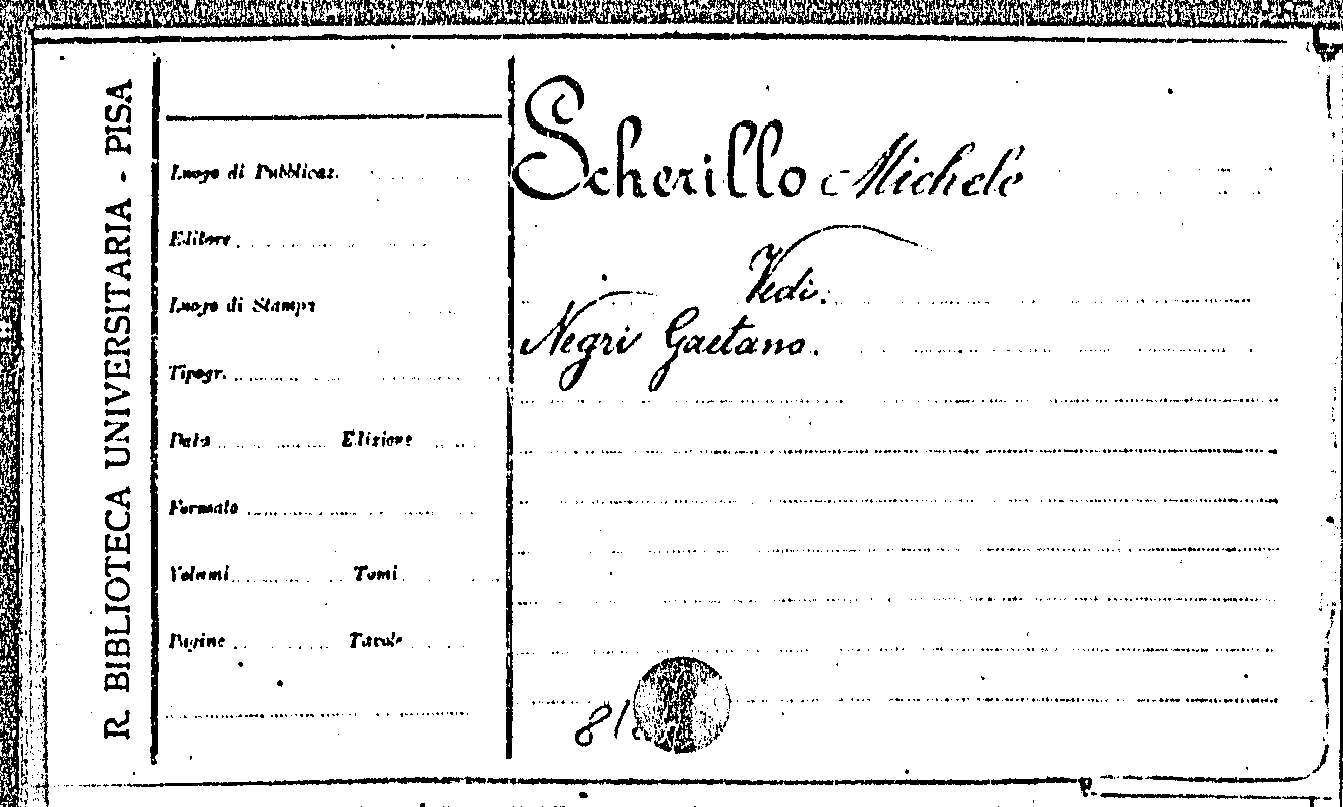 R. BIBLIOTECA UNIVERSITARIA - PISA
Luogo di Pubblicaz.
Editore
Luogo di Stampa
Tipogr.
Data Edizione
Formato
Volumi Tomi
Pagine Tavole
Scherillo Michele
Vedi:
Negri Gaetano.